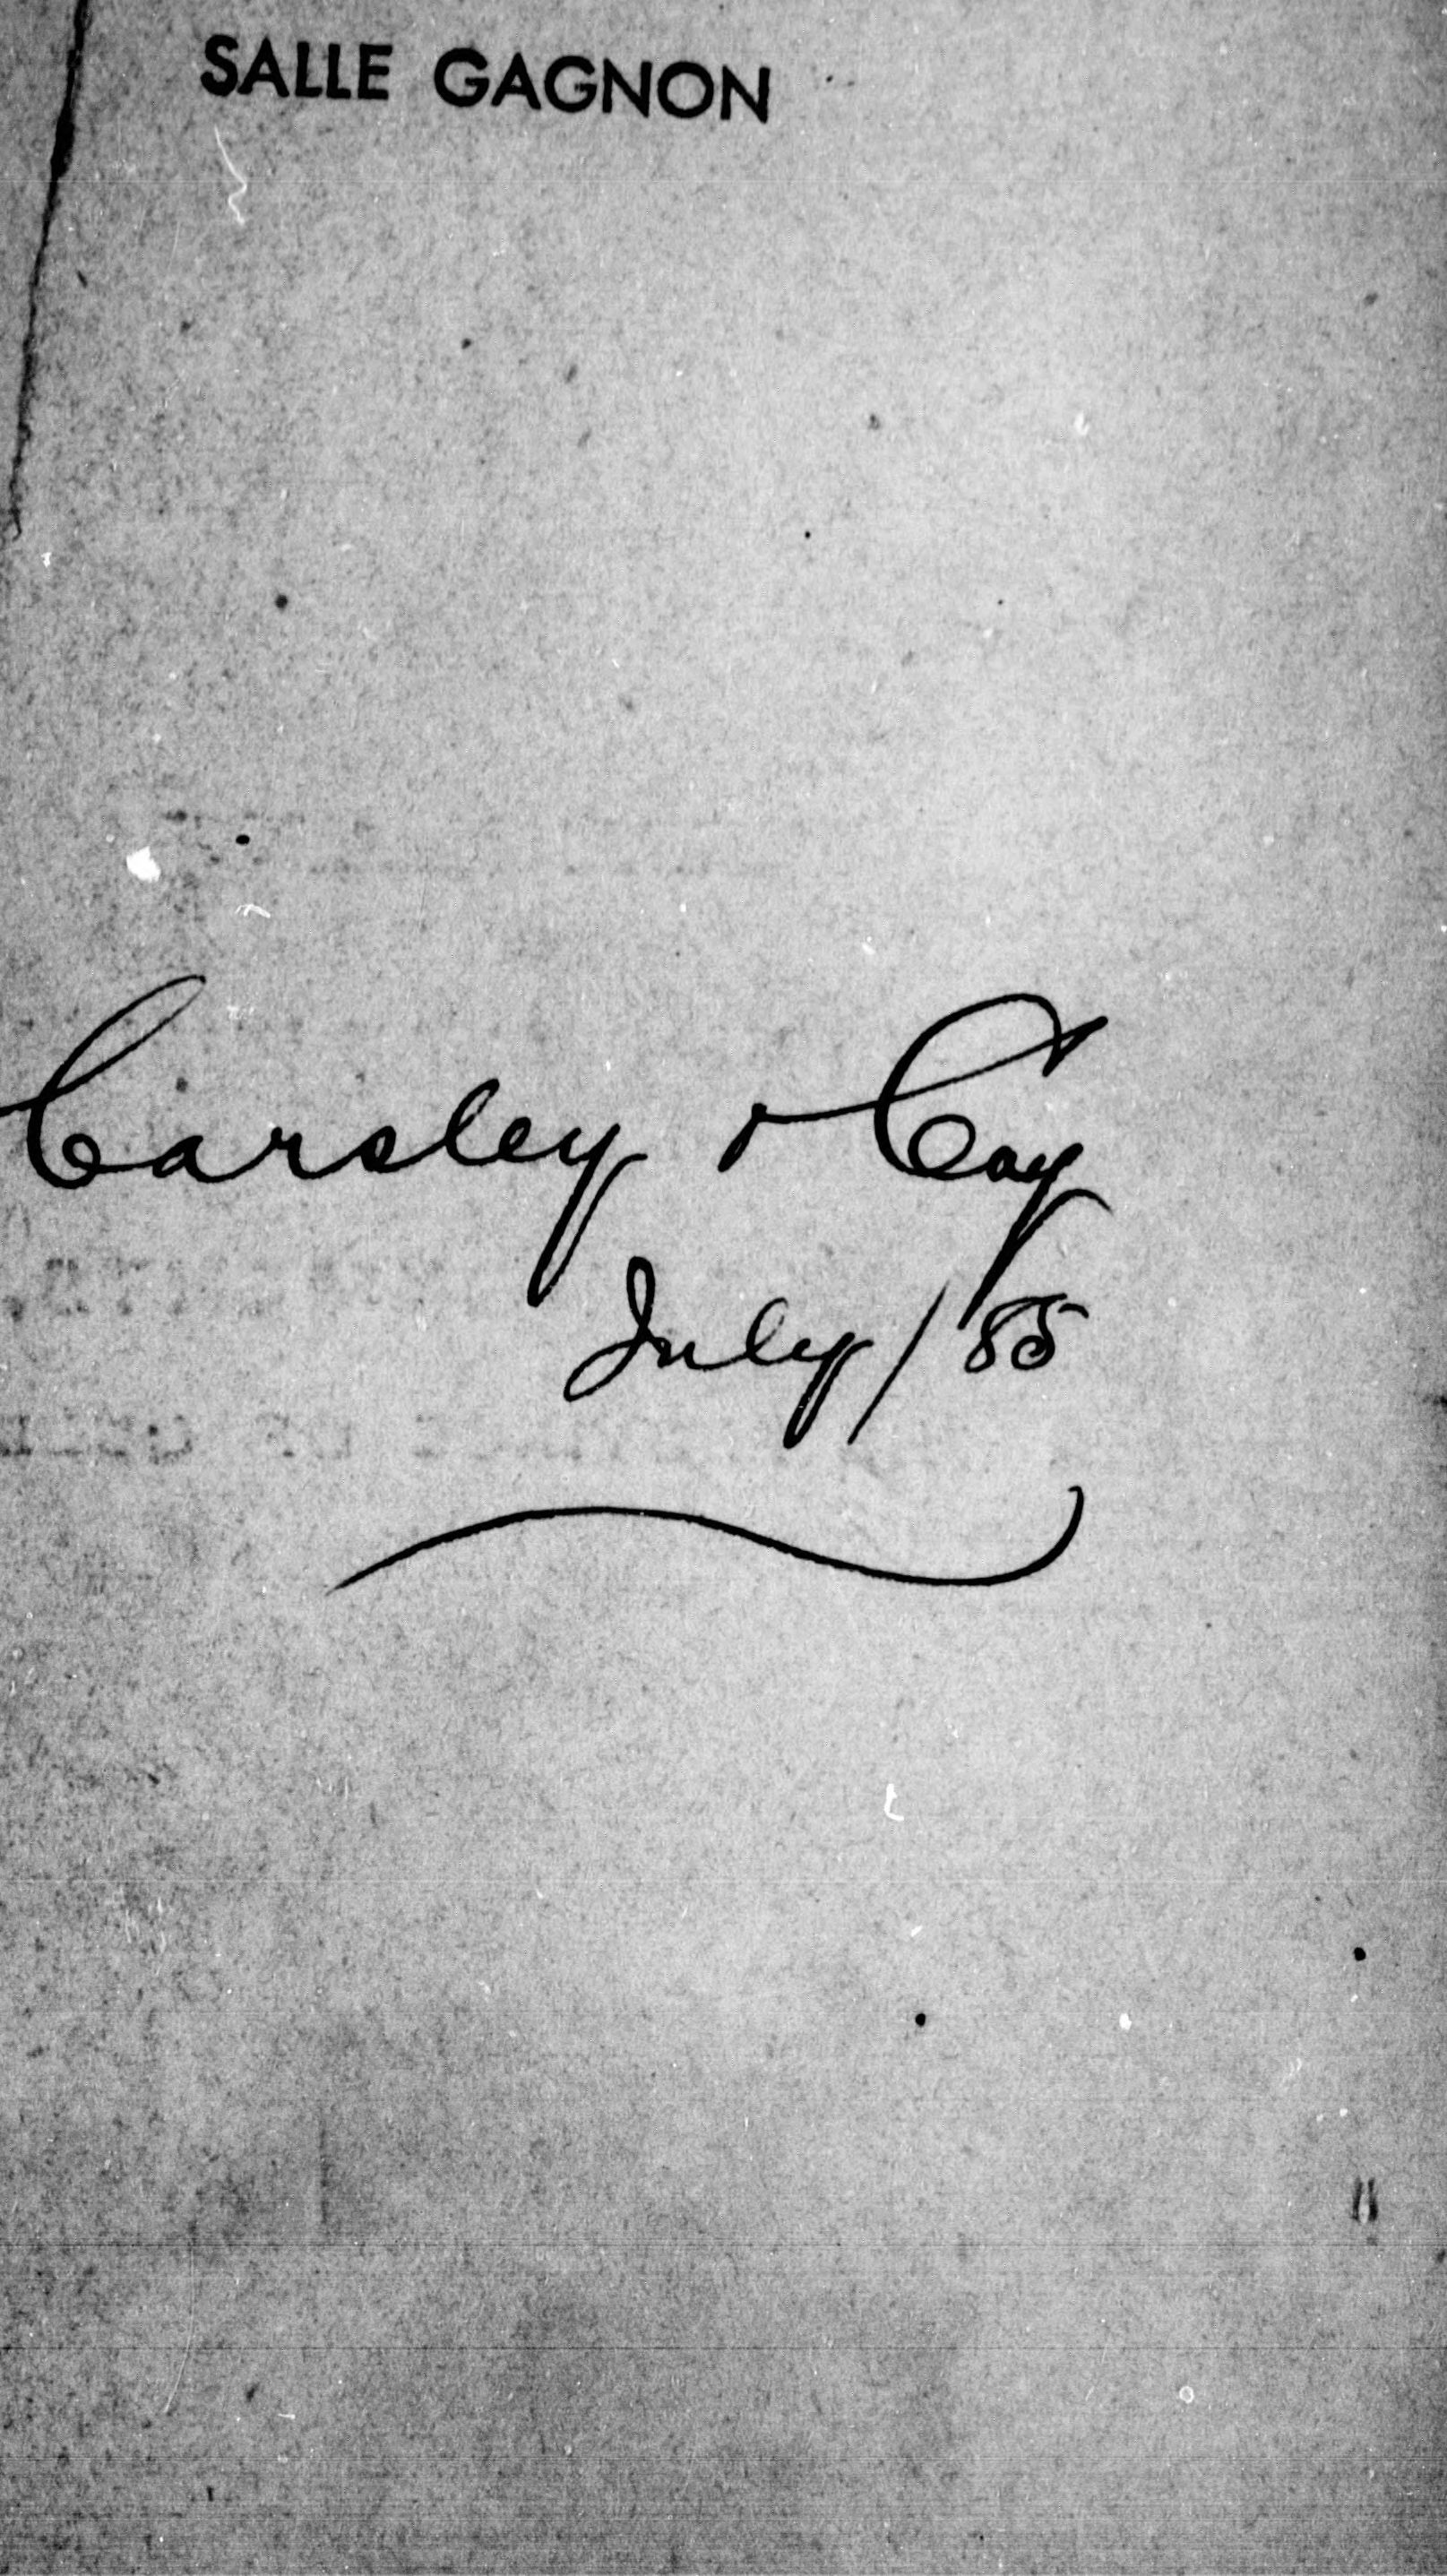 SALLE GAGNON
Carsley & Coy
July / 85